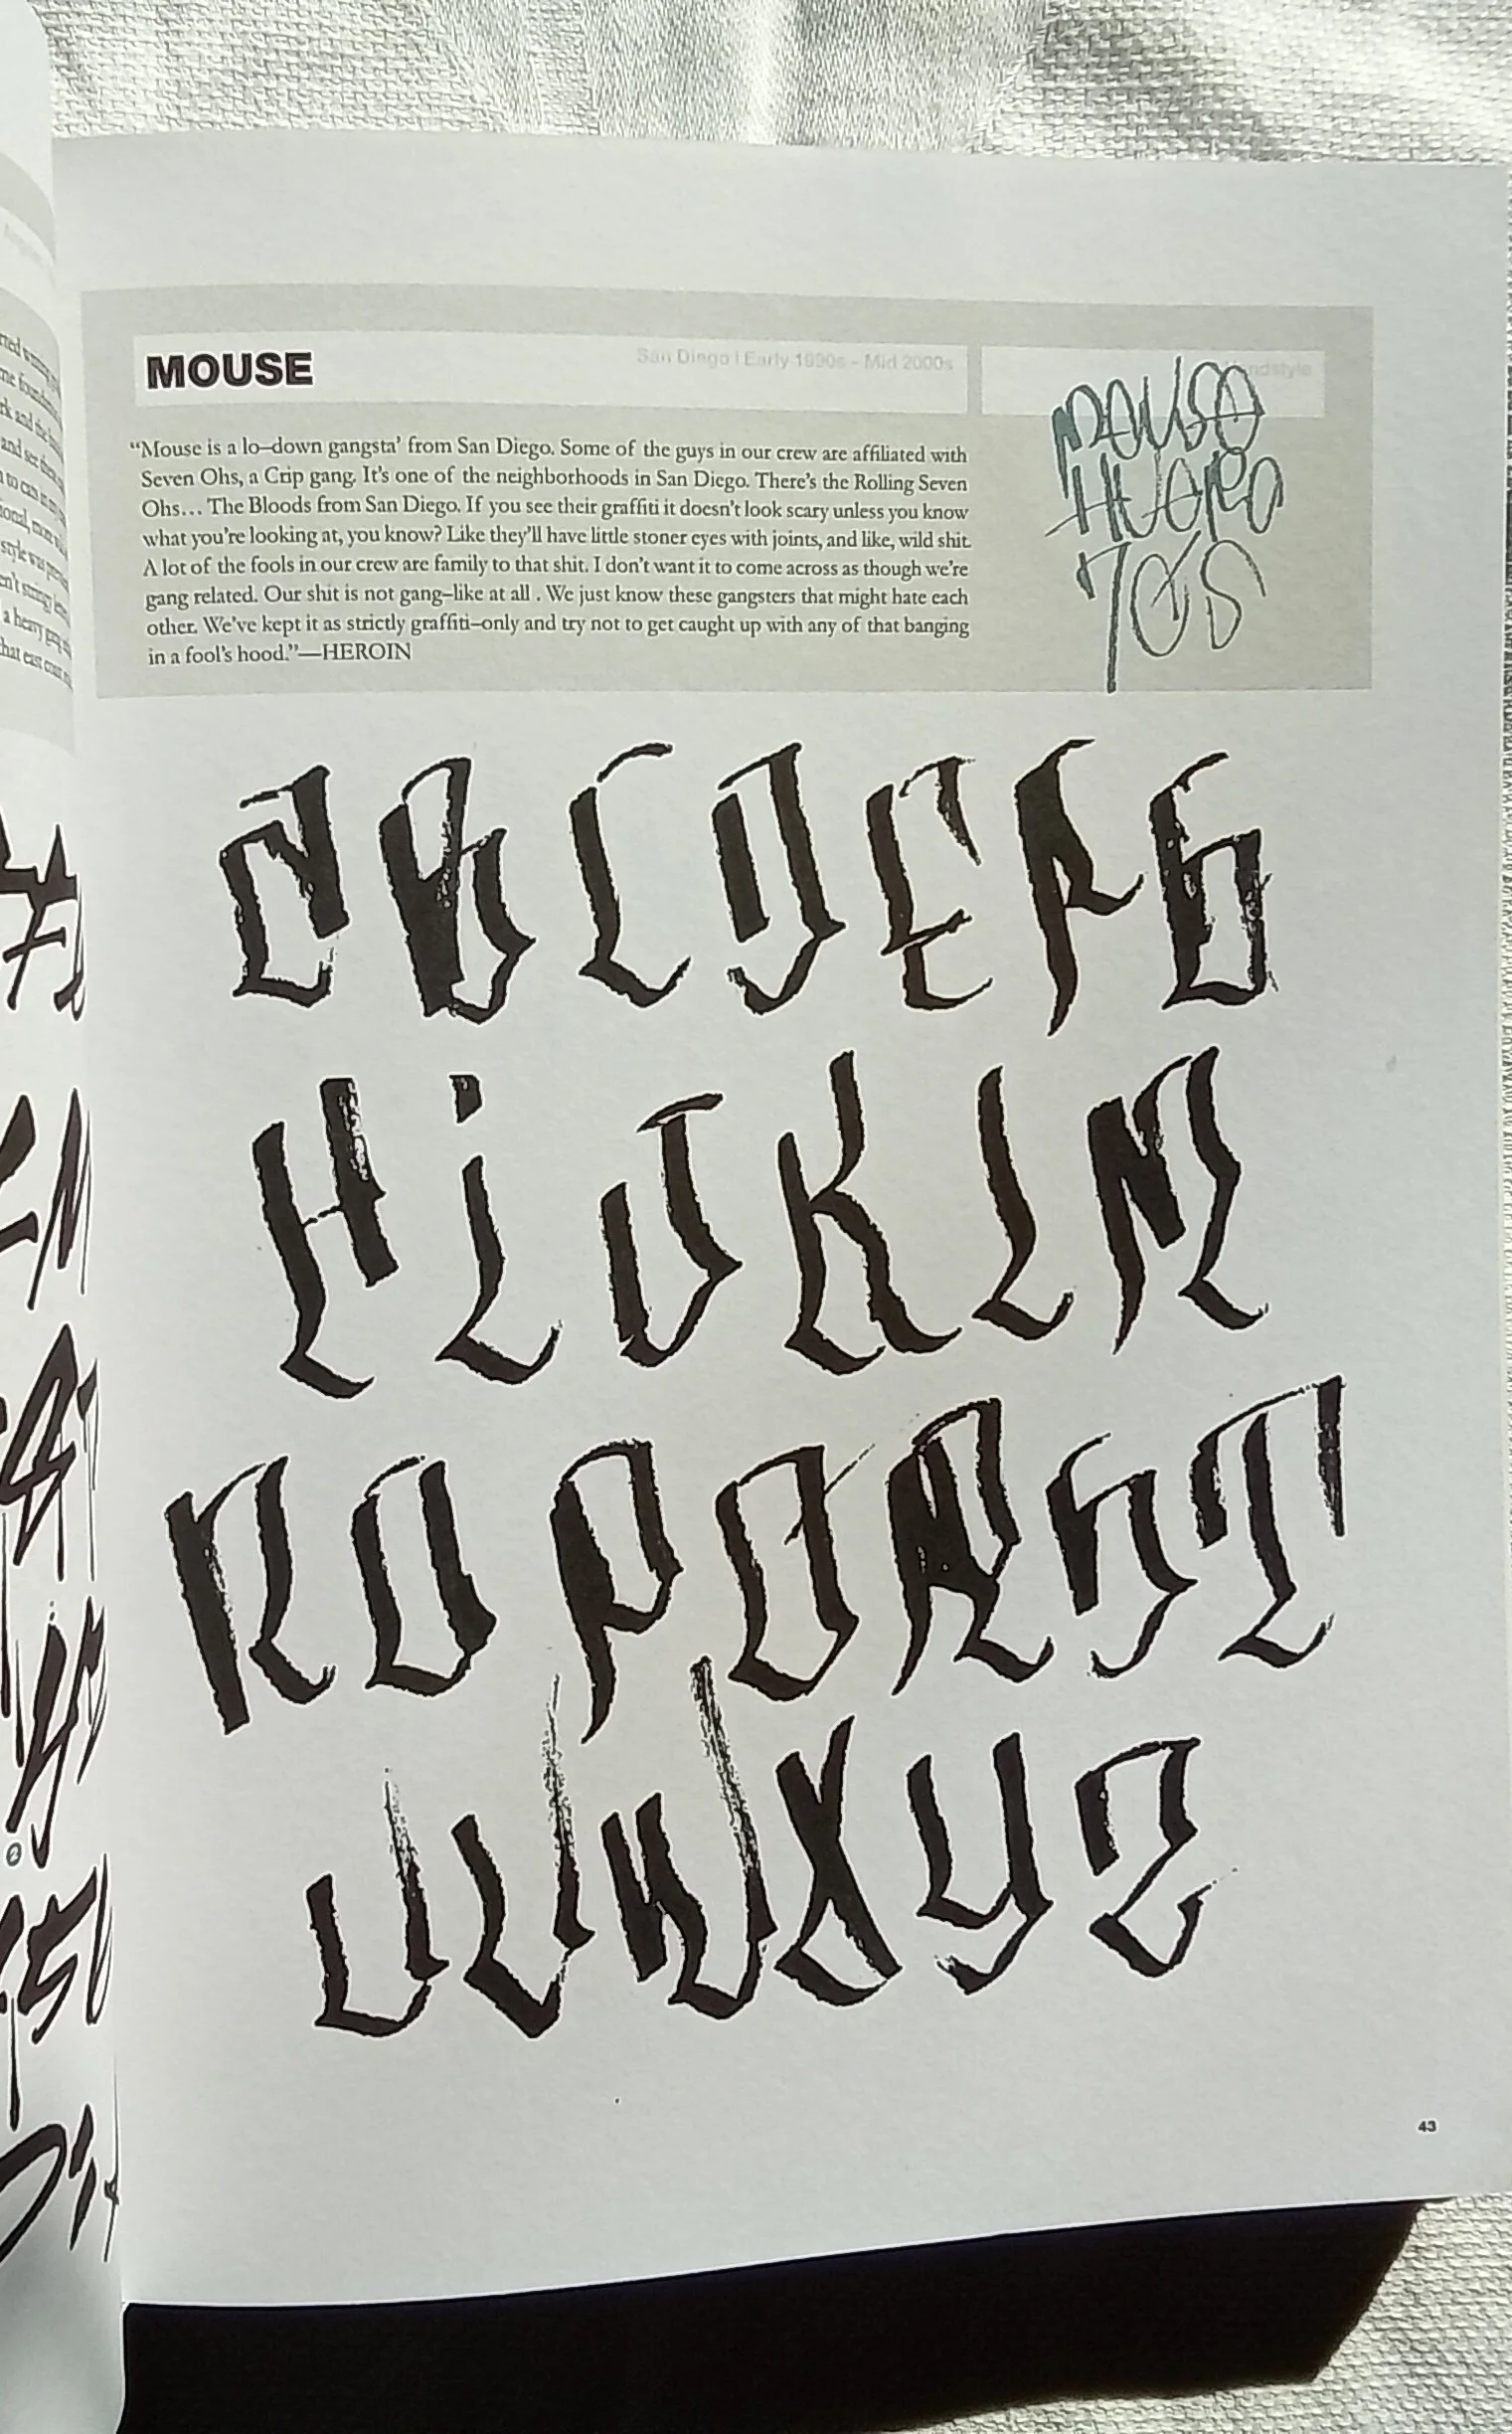 MOUSE
San Diego | Early 1990s - Mid 2000s
Handstyle
MOUSE
HUERO
70S
“Mouse is a lo–down gangsta’ from San Diego. Some of the guys in our crew are affiliated with
Seven Ohs, a Crip gang. It’s one of the neighborhoods in San Diego. There’s the Rolling Seven
Ohs… The Bloods from San Diego. If you see their graffiti it doesn’t look scary unless you know
what you’re looking at, you know? Like they’ll have little stoner eyes with joints, and like, wild shit.
A lot of the fools in our crew are family to that shit. I don’t want it to come across as though we’re
gang related. Our shit is not gang–like at all . We just know these gangsters that might hate each
other. We’ve kept it as strictly graffiti–only and try not to get caught up with any of that banging
in a fool’s hood.”—HEROIN
A B C D E F G
H i J K L M
N O P Q R S T
U V W X Y Z
43